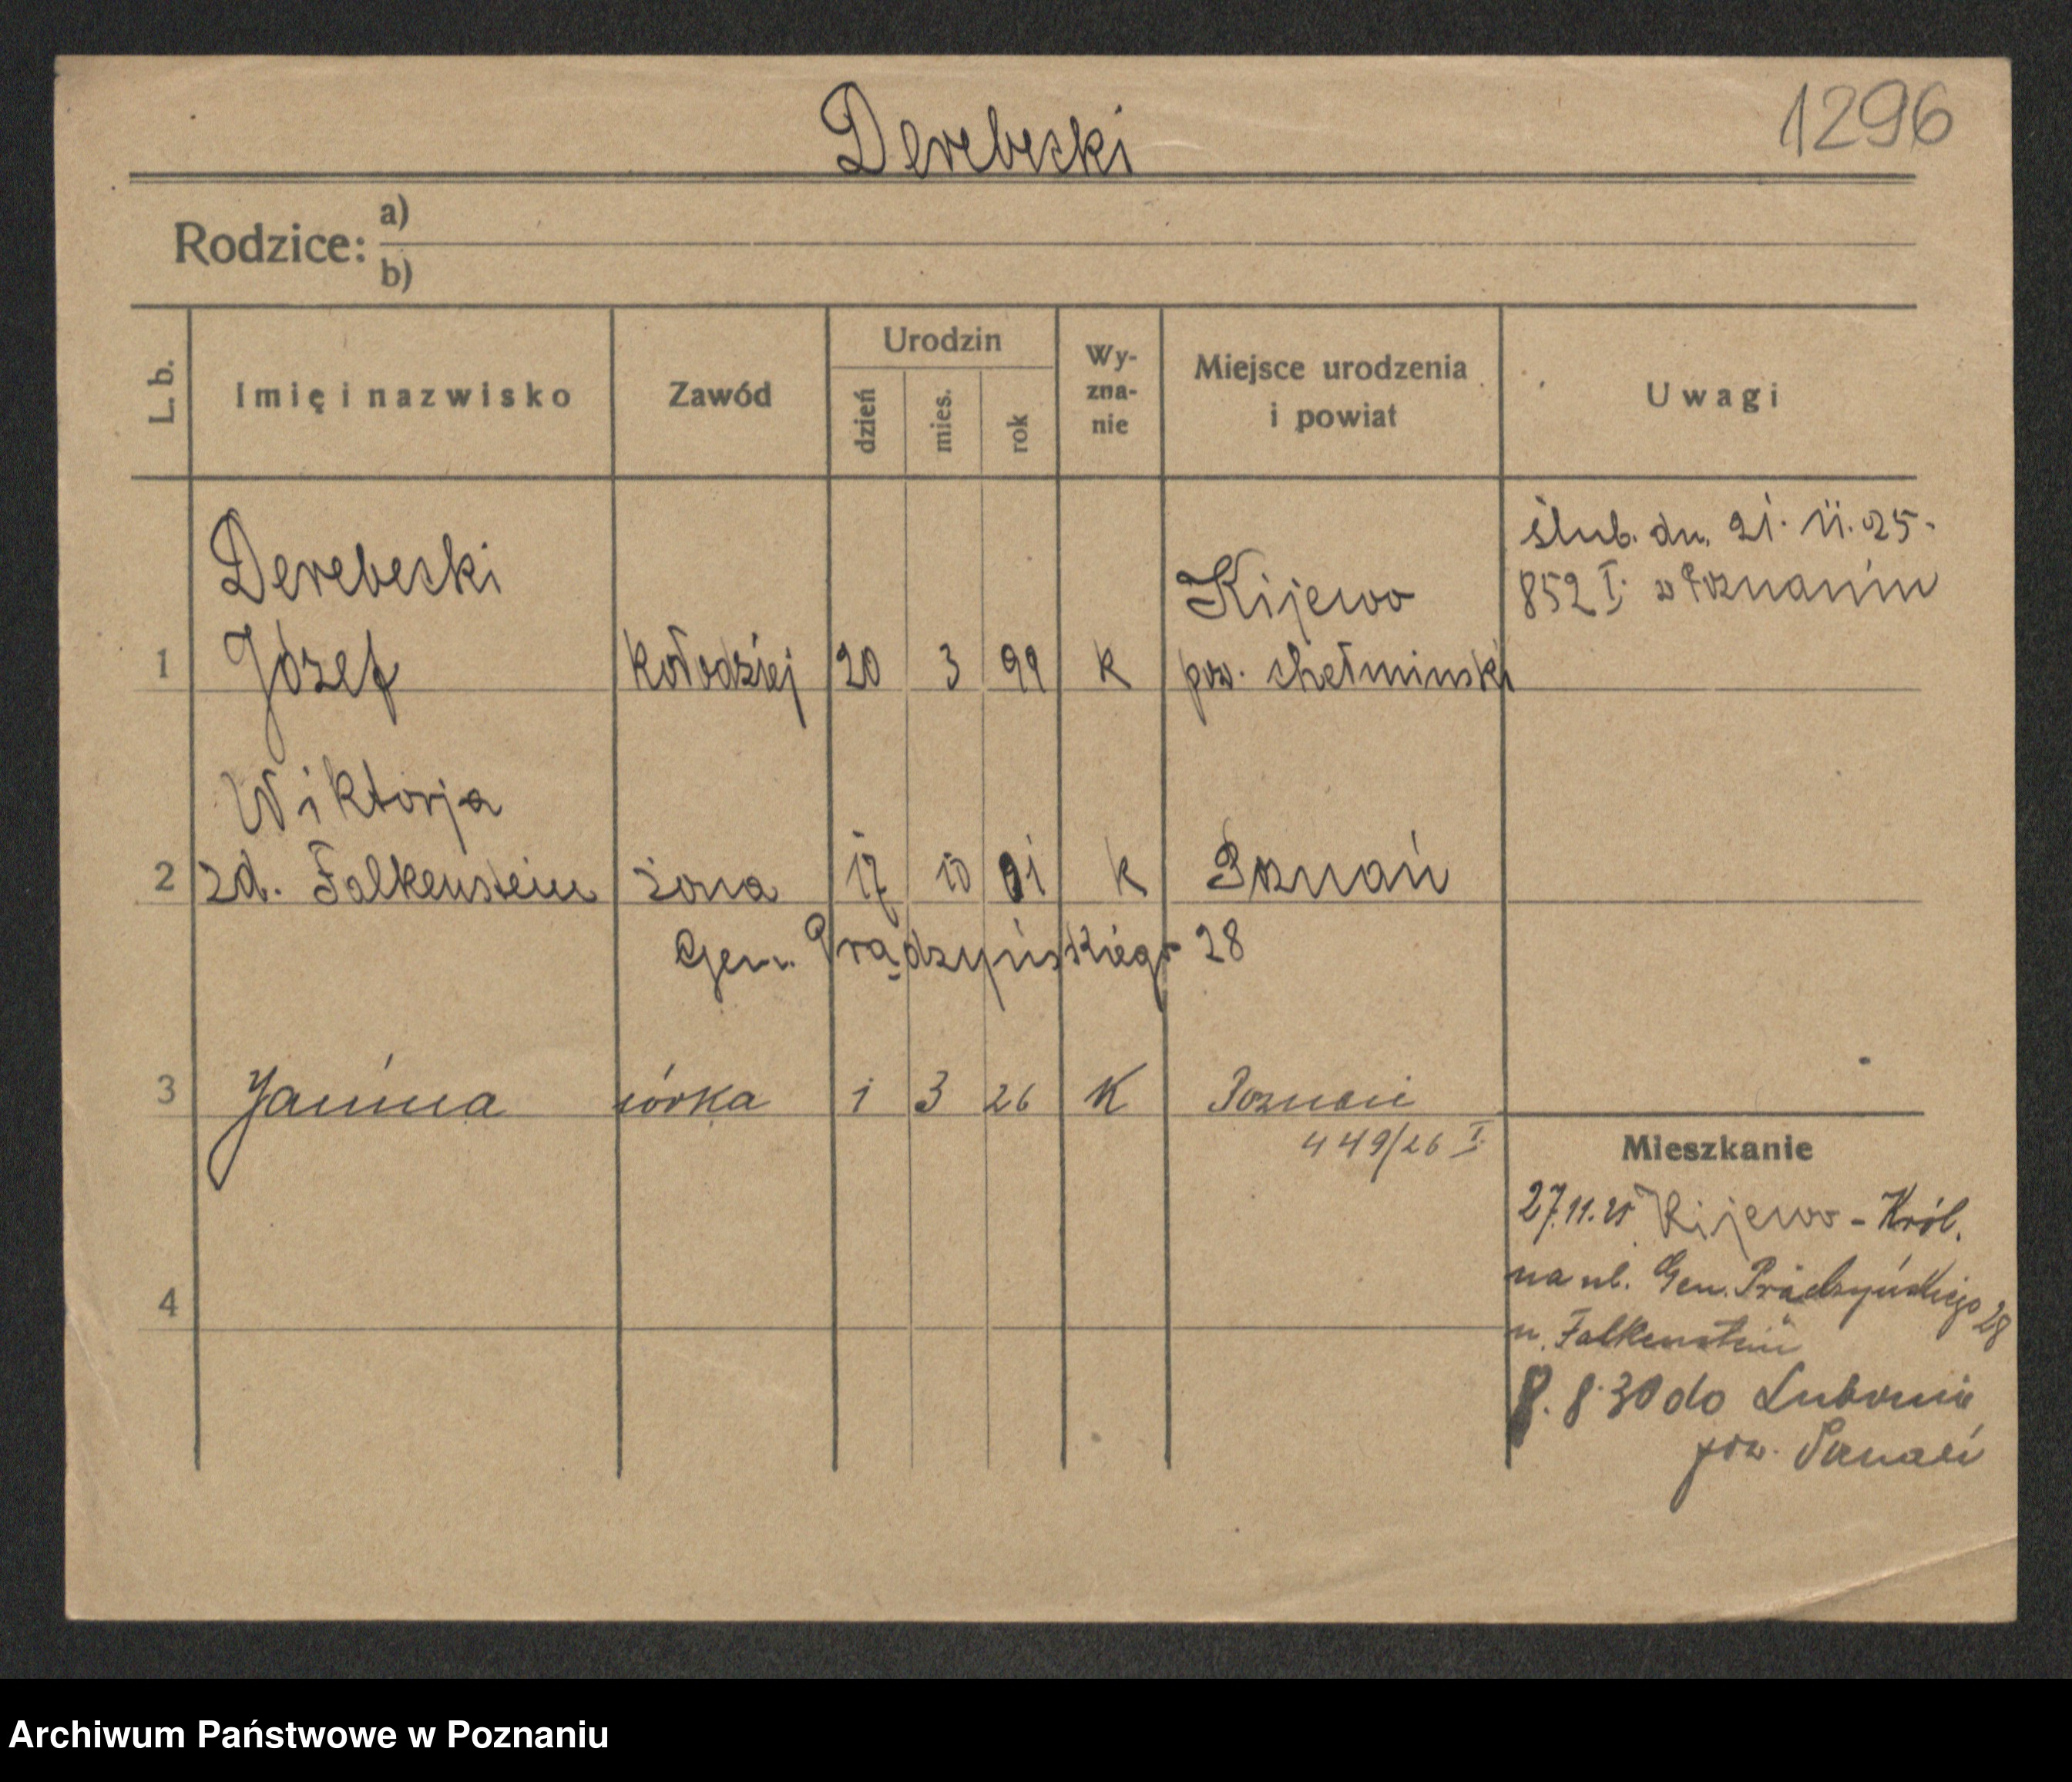 Derebecki
1296
Rodzice: a)
b)
L. b.
Imię i nazwisko
Zawód
Urodzin
dzień
mies.
rok
Wy-
zna-
nie
Miejsce urodzenia
i powiat
Uwagi
ślub. dn. 21. 11. 25.
852 I. w Poznaniu
Derebecki
Kijewo
1 Józef kołodziej 20 3 99 k pow. chełminski
Wiktorja
2 zd. Falkenstein żona 17 10 01 k Poznań
Gen. Prądzyńskiego 28
3 Janina córka 1 3 26 K Poznań
449/26 I.
Mieszkanie
27.11.25 Kijewo - Król.
na ul. Gen. Prądzyńskiego 28
u. Falkenstein
4
8. 8. 30 do Lubonia
pow. Poznań
Archiwum Państwowe w Poznaniu